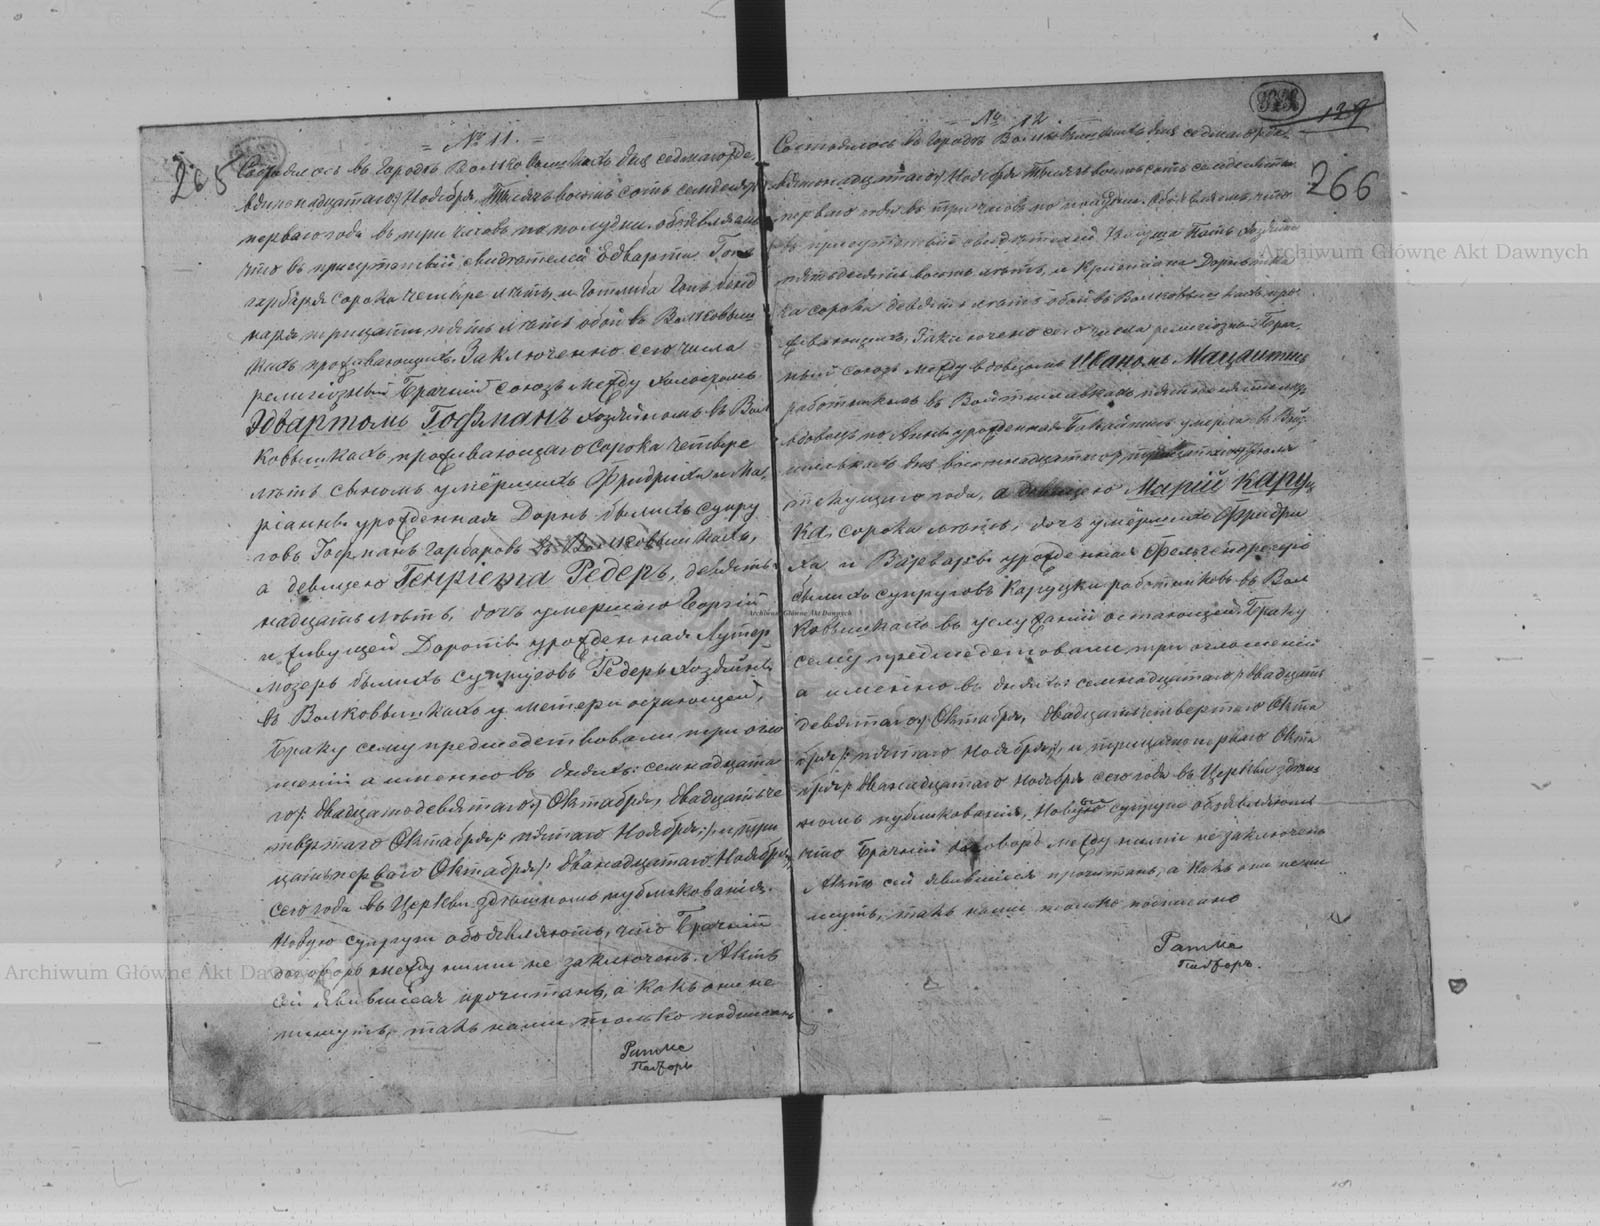 265
= № 11. =
Состоялось въ городѣ Волковышкахъ дня седмаго/де-
вятнадцатаго/ Ноября, Тысяча восемь сотъ семьдесятъ
перваго года въ три часовъ по полудни объявляемъ
что въ присутствіи свидѣтелей Едварта
гарбаря сорока четыре лѣтъ, и Готлиба
наря тридцати пять лѣтъ обой въ Волковыш
кахъ проживающихъ. Заключенно сего числа
религіозный Брачный союзъ между холостомъ
Эдвартомъ Гофманъ хозяйномъ въ Вол
ковышкахъ проживающаго сорока четыре
лѣтъ сыномъ умёршихъ Фридриха и Ма-
ріанны урожденная Дорнъ бывшихъ супру
говъ Гофманъ гарбаровъ въ Волковышкахъ,
а девицею Генріета Редеръ, девять-
надцать лѣтъ, дочъ умершаго Георгій
и живущей Доротѣ урожденная Лутер
мозеръ бывшихъ супруговъ Редеръ хозяйнъ
въ Волковышкахъ у матери остающей,
Браку сему предшедствовали три огло
шеній а именно въ дняхъ: семнадцата
го/: двадцатодевятаго:/ Октября, двадцатьче
твертаго Октября/: пятаго Ноября:/ и три
цатьперваго Октября/: двѣнадцатаго Ноября:/
сего года въ Церкви здѣшномъ публикованія.
Новую супруги объявляютъ, что Брачный
договоръ между ними не заключенъ. Актъ
сей явившіеся прочитанъ, а какъ они не
пишутъ, такъ нами только подписанъ
Ратке
Пасторъ
129
№ 12
266
Состоялось въ городѣ Волковышкахъ дня седмаго/де-
вятнадцатаго/ Ноября Тысяча восемь сотъ семьдесятъ
перваго года въ три часовъ по полудни. Объявляемъ, что
въ присутствіи свидѣтелей
пятьдесятъ восемь лѣтъ, и
ка сорока девять лѣтъ обой въ Волковышкахъ про-
живающихъ, Заключено сего числа религіозный Брач-
ный союзъ между вдовцомъ Иваномъ
работникомъ въ
вдовецъ по Анны урожденная умерла въ
дня восемнадцатаго/ Іюля
текущаго года, а девицею Марій Каруц
ка, сорока лѣтъ, дочъ умёршихъ Фридри
ха и Варвары урожденная
бывшихъ супруговъ Каруцки работниковъ въ Вол
ковышкахъ въ услуженіи остающей. Браку
сему предшедствовали три оглошеній
а именно въ дняхъ: семнадцатаго/: двадцать
девятаго:/ Октября, двадцатьчетвертаго Октя
бря/: пятаго Ноября:/, и тридцатьперваго Октя
бря/: двѣнадцатаго Ноября сего года въ Церкви здѣш
номъ публикованія, Новую супруги объявляютъ
что Брачный договоръ между ними не заключенъ
Актъ сей явившіеся прочитанъ, а какъ они не пи
шутъ, такъ нами только подписано
Ратке
Пасторъ.
Archiwum Główne Akt Dawnych
Archiwum Główne Akt Dawnych
Archiwum Główne Akt Dawnych